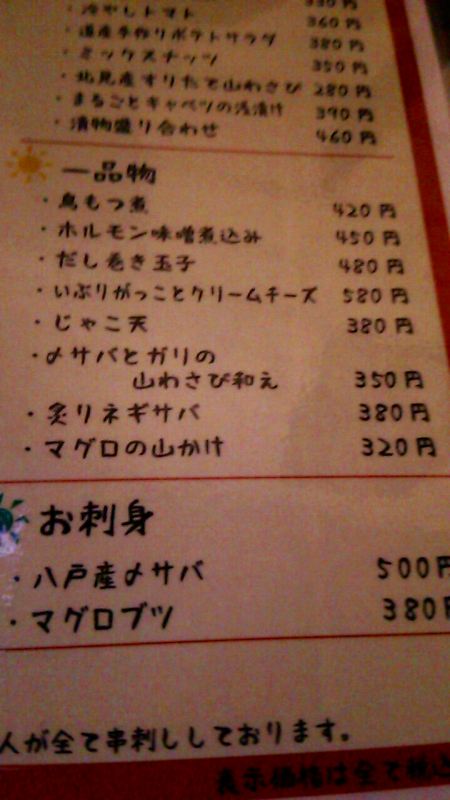 冷やしトマト 360円
道産手作りポテトサラダ 380円
ミックスナッツ 350円
北見産すりたて山わさび 280円
まるごとキャベツの浅漬け 390円
漬物盛り合わせ 460円
一品物
・鳥もつ煮 420円
・ホルモン味噌煮込み 450円
・だし巻き玉子 480円
・いぶりがっことクリームチーズ 580円
・じゃこ天 380円
・〆サバとガリの
山わさび和え 350円
・炙りネギサバ 380円
・マグロの山かけ 320円
お刺身
・八戸産〆サバ 500円
・マグロブツ 380円
人が全て串刺ししております。
表示価格は全て税込